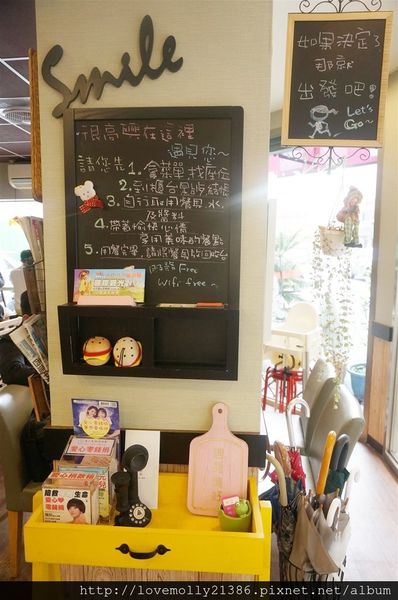 Smile
如果決定了
那就
出發吧!
Let's
Go~
很高興在這裡
遇見您~
請您先 1. 拿菜單找座位
2. 到櫃台點餐結帳
3. 自行取用餐具、水、
及醬料
4. 帶著愉快心情
享用美味的餐點
5. 用餐完畢,請將餐具放回收台
Free
Wifi free~
愛心零錢捐
拯救 生命
http://lovemolly21386.pixnet.net/album